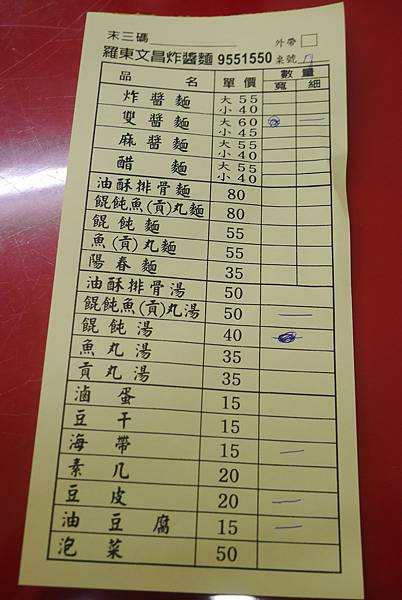 末三碼
外帶
羅東文昌炸醬麵 9551550 桌號 7
品名 單價 數量
寬 細
炸醬麵 大 55 小 40
雙醬麵 大 60 小 45
麻醬麵 大 55 小 40
醋麵 大 55 小 40
油酥排骨麵 80
餛飩魚(貢)丸麵 80
餛飩麵 55
魚(貢)丸麵 55
陽春麵 35
油酥排骨湯 50
餛飩魚(貢)丸湯 50 一
餛飩湯 40
魚丸湯 35
貢丸湯 35
滷蛋 15
豆干 15
海帶 15 一
素几 20
豆皮 20 一
油豆腐 15 一
泡菜 50